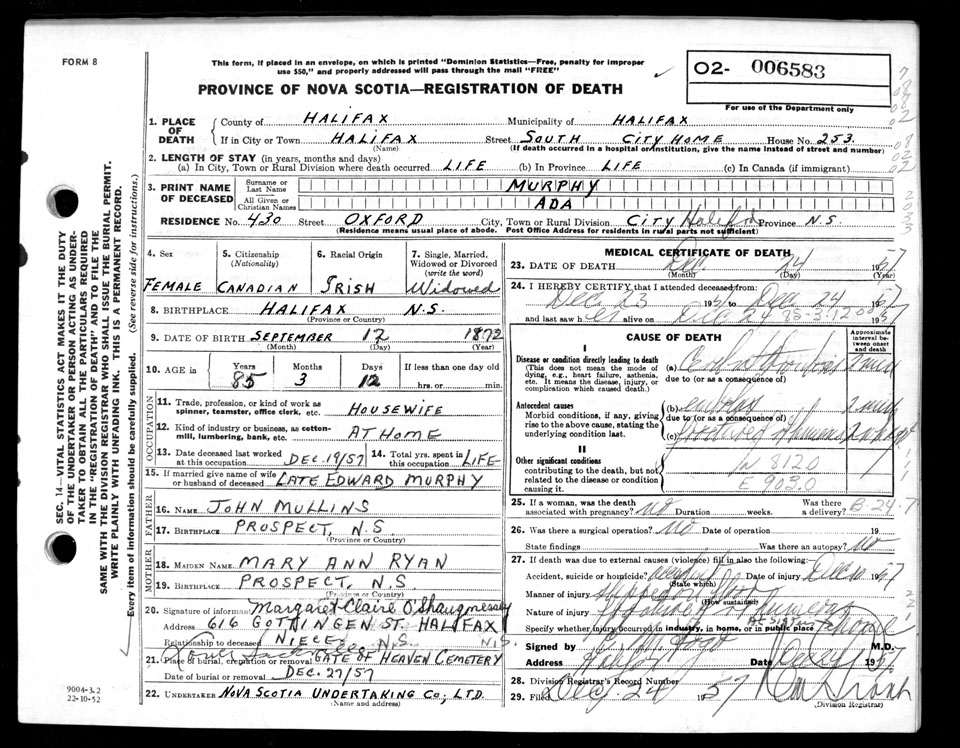 FORM 8
This form, if placed in an envelope, on which is printed "Dominion Statistics—Free, penalty for improper
use $50," and properly addressed will pass through the mail "FREE"
O2- 006583
PROVINCE OF NOVA SCOTIA—REGISTRATION OF DEATH
For use of the Department only
1. PLACE OF DEATH
County of HALIFAX Municipality of HALIFAX
If in City or Town HALIFAX Street SOUTH CITY HOME House No. 253
(Name) (If death occurred in a hospital or institution, give the name instead of street and number)
2. LENGTH OF STAY (in years, months and days)
(a) In City, Town or Rural Division where death occurred LIFE (b) In Province LIFE (c) In Canada (if immigrant)
3. PRINT NAME OF DECEASED
Surname or Last Name MURPHY
All Given or Christian Names ADA
RESIDENCE No. 430 Street OXFORD City, Town or Rural Division CITY Halifax Province N.S.
(Residence means usual place of abode. Post Office Address for residents in rural parts not sufficient)
SEC. 14—VITAL STATISTICS ACT MAKES IT THE DUTY
OF THE UNDERTAKER OR PERSON ACTING AS UNDER-
TAKER TO OBTAIN ALL THE PARTICULARS REQUIRED
IN THE "REGISTRATION OF DEATH" AND TO FILE THE
SAME WITH THE DIVISION REGISTRAR WHO SHALL ISSUE THE BURIAL PERMIT.
WRITE PLAINLY WITH UNFADING INK. THIS IS A PERMANENT RECORD.
Every item of information should be carefully supplied. (See reverse side for instructions.)
4. Sex 5. Citizenship (Nationality) 6. Racial Origin 7. Single, Married, Widowed or Divorced (write the word)
FEMALE CANADIAN IRISH Widowed
8. BIRTHPLACE HALIFAX N.S.
(Province or Country)
9. DATE OF BIRTH SEPTEMBER 12 1872
(Month) (Day) (Year)
10. AGE in Years Months Days If less than one day old
85 3 12 hrs. or min.
OCCUPATION
11. Trade, profession, or kind of work as
spinner, teamster, office clerk, etc. HOUSEWIFE
12. Kind of industry or business, as cotton-
mill, lumbering, bank, etc. AT HOME
13. Date deceased last worked at this occupation DEC. 19/57 14. Total yrs. spent in this occupation LIFE
15. If married give name of wife
or husband of deceased LATE EDWARD MURPHY
FATHER
16. NAME JOHN MULLINS
17. BIRTHPLACE PROSPECT, N.S
(Province or Country)
MOTHER
18. MAIDEN NAME MARY ANN RYAN
19. BIRTHPLACE PROSPECT, N.S
(Province or Country)
20. Signature of informant Margaret Claire O'Shaugnessy
Address 616 GOTTINGEN ST. HALIFAX
Relationship to deceased NIECE N.S. N.S.
21. Place of burial, cremation or removal GATE OF HEAVEN CEMETERY
Date of burial or removal DEC. 27/57
22. UNDERTAKER NOVA SCOTIA UNDERTAKING CO; LTD.
(Name and address)
9004-3.2
22-10-52
MEDICAL CERTIFICATE OF DEATH
23. DATE OF DEATH Dec. 24 1957
(Month) (Day) (Year)
24. I HEREBY CERTIFY that I attended deceased from
Dec 23 1957 to Dec 24 1957
and last saw her alive on Dec 24 1957
85-3-12
CAUSE OF DEATH
Approximate interval between onset and death
I
Disease or condition directly leading to death
(This does not mean the mode of
dying, e.g., heart failure, asthenia,
etc. It means the disease, injury, or
complication which caused death.)
(a)
due to (or as a consequence of)
Antecedent causes
Morbid conditions, if any, giving
rise to the above cause, stating the
underlying condition last.
(b) embolus
due to (or as a consequence of)
(c) fractured humerus
II
Other significant conditions
contributing to the death, but not
related to the disease or condition
causing it.
N 8120
E 903.0
25. If a woman, was the death
associated with pregnancy? NO Duration weeks. Was there a delivery?
B-24-7
26. Was there a surgical operation? NO Date of operation 19
State findings Was there an autopsy? NO
27. If death was due to external causes (violence) fill in also the following:—
Accident, suicide or homicide? accident Date of injury Dec 10 1957
(State which)
Manner of injury
(How sustained)
Nature of injury fractured humerus
Specify whether injury occurred in industry, in home, or in public place
AT SISTER'S home
Signed by M.D.
Address Halifax Date 1957
28. Division Registrar's Record Number
29. Filed Dec 24 1957
(Division Registrar)